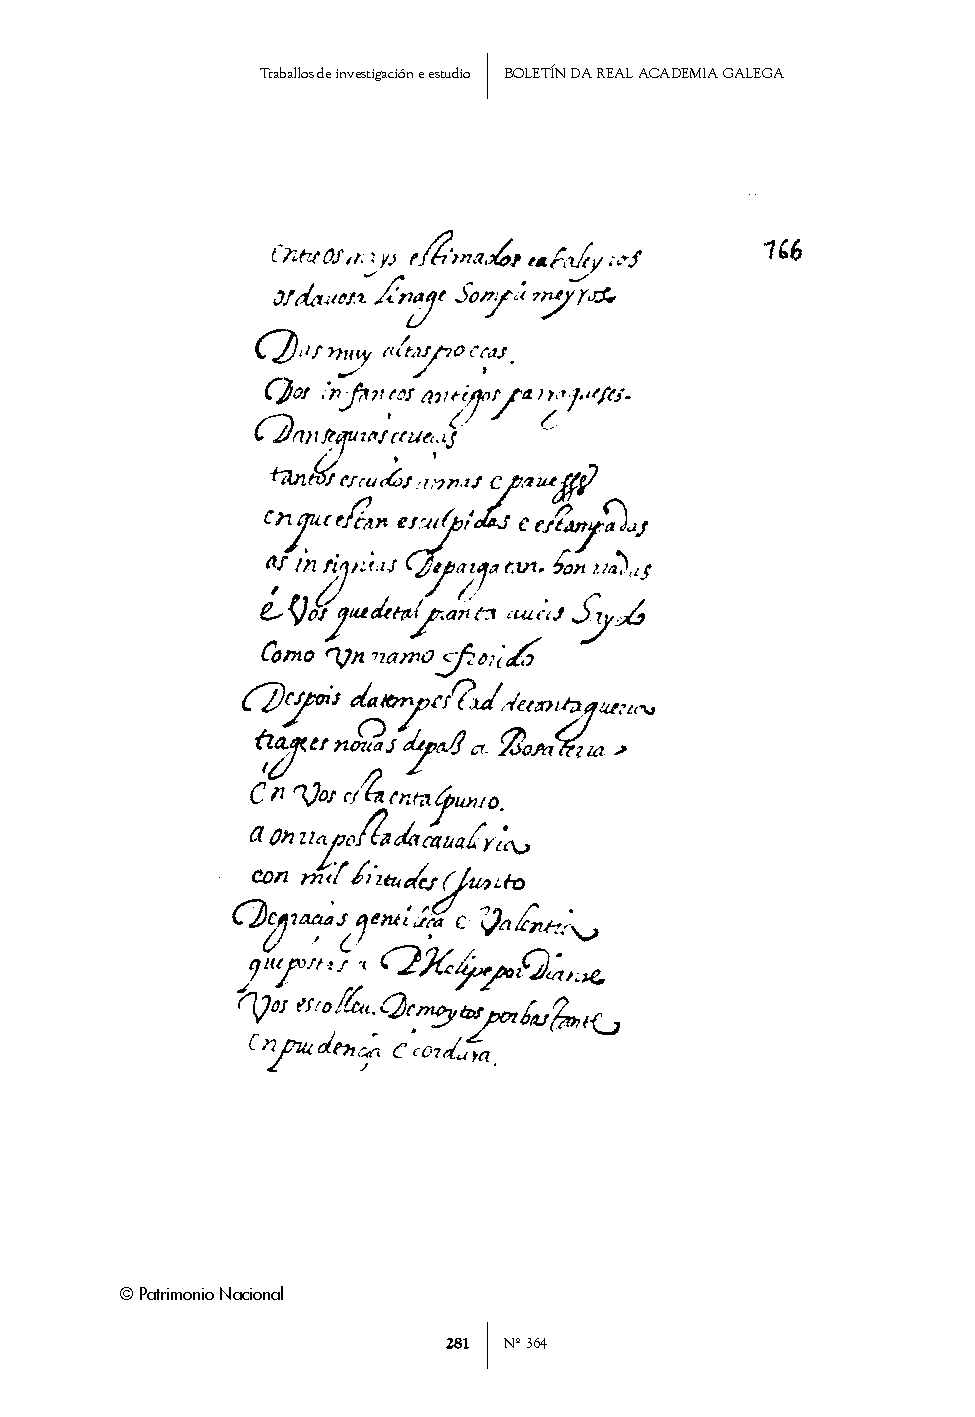 Traballos de investigación e estudio
BOLETÍN DA REAL ACADEMIA GALEGA
166
Entre os mays estimados cabaleyros
os da uosa linage Som pimeyros
Das muy altas proeças.
Dos infantes antigos
Dan seguras certeças
tantos escudos armas e paueses
en que estan esculpidas e estampadas
as insignias De parga tan honrradas
é Vos que de tal planta aueis Saydo
Como Vn rramo frorido
Despois da tempestad de tanta guerra
trages nouas de paß a Bosa terra
En Vos esta en tal punto.
a onrra posta da caualeria
con mil birtudes Junto
De gracias gentileça e Valentia
que postas a Phelipe por Diante
Vos escolleu. De moytos por bastante
En prudençia e cordura.
© Patrimonio Nacional
281
Nº 364